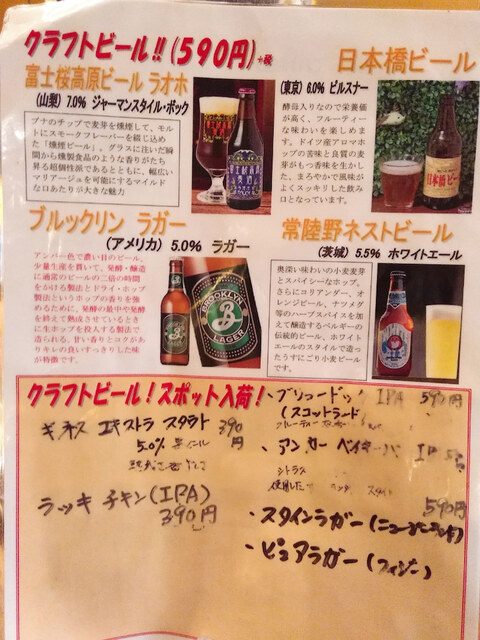 クラフトビール!!(590円)+税
富士桜高原ビール ラオホ
(山梨) 7.0% ジャーマンスタイル・ボック
ブナのチップで麦芽を燻煙して、モル
トにスモークフレーバーを綴じ込め
た「燻煙ビール」。グラスに注いだ瞬
間から燻製食品のような香りがたち
昇る超個性派であるとともに、幅広い
マリアージュを可能にするマイルド
な口あたりが大きな魅力
日本橋ビール
(東京) 6.0% ピルスナー
酵母入りなので栄養価
が高く、フルーティー
な味わいを楽しめま
す。ドイツ産アロマホ
ップの苦味と良質の麦
芽がもつ香味を生かし
た、まろやかで風味が
よくスッキリした飲み
口となっています。
ブルックリン ラガー
(アメリカ) 5.0% ラガー
アンバー色で濃い目のビール。
少量生産を貫いて、発酵・醸造
に通常のビールの二倍の時間
をかける製法とドライ・ホップ
製法というホップの香りを強
めるために、発酵の最中や発酵
を終えて熟成させているとき
に生ホップを投入する製法で
造られる、甘い香りとコクがあ
りキレの良いすっきりした味
が特徴です。
BROOKLYN
B
LAGER
常陸野ネストビール
(茨城) 5.5% ホワイトエール
奥深い味わいの小麦麦芽
とスパイシーなホップ。
さらにコリアンダー、オ
レンジピール、ナツメグ
等のハーブスパイスを加
えて醸造するベルギーの
伝統的ビール。ホワイト
エールのスタイルで造っ
たうすにごり小麦ビール
です。
クラフトビール!スポット入荷!
ギネス エキストラ スタウト 390円
5.0%
ラッキーチキン(IPA)
390円
IPA 590円
(スコットランド
アンカー
シトラス
590円
・スタインラガー(ニュージーランド)
・ピュアラガー(フィジー)